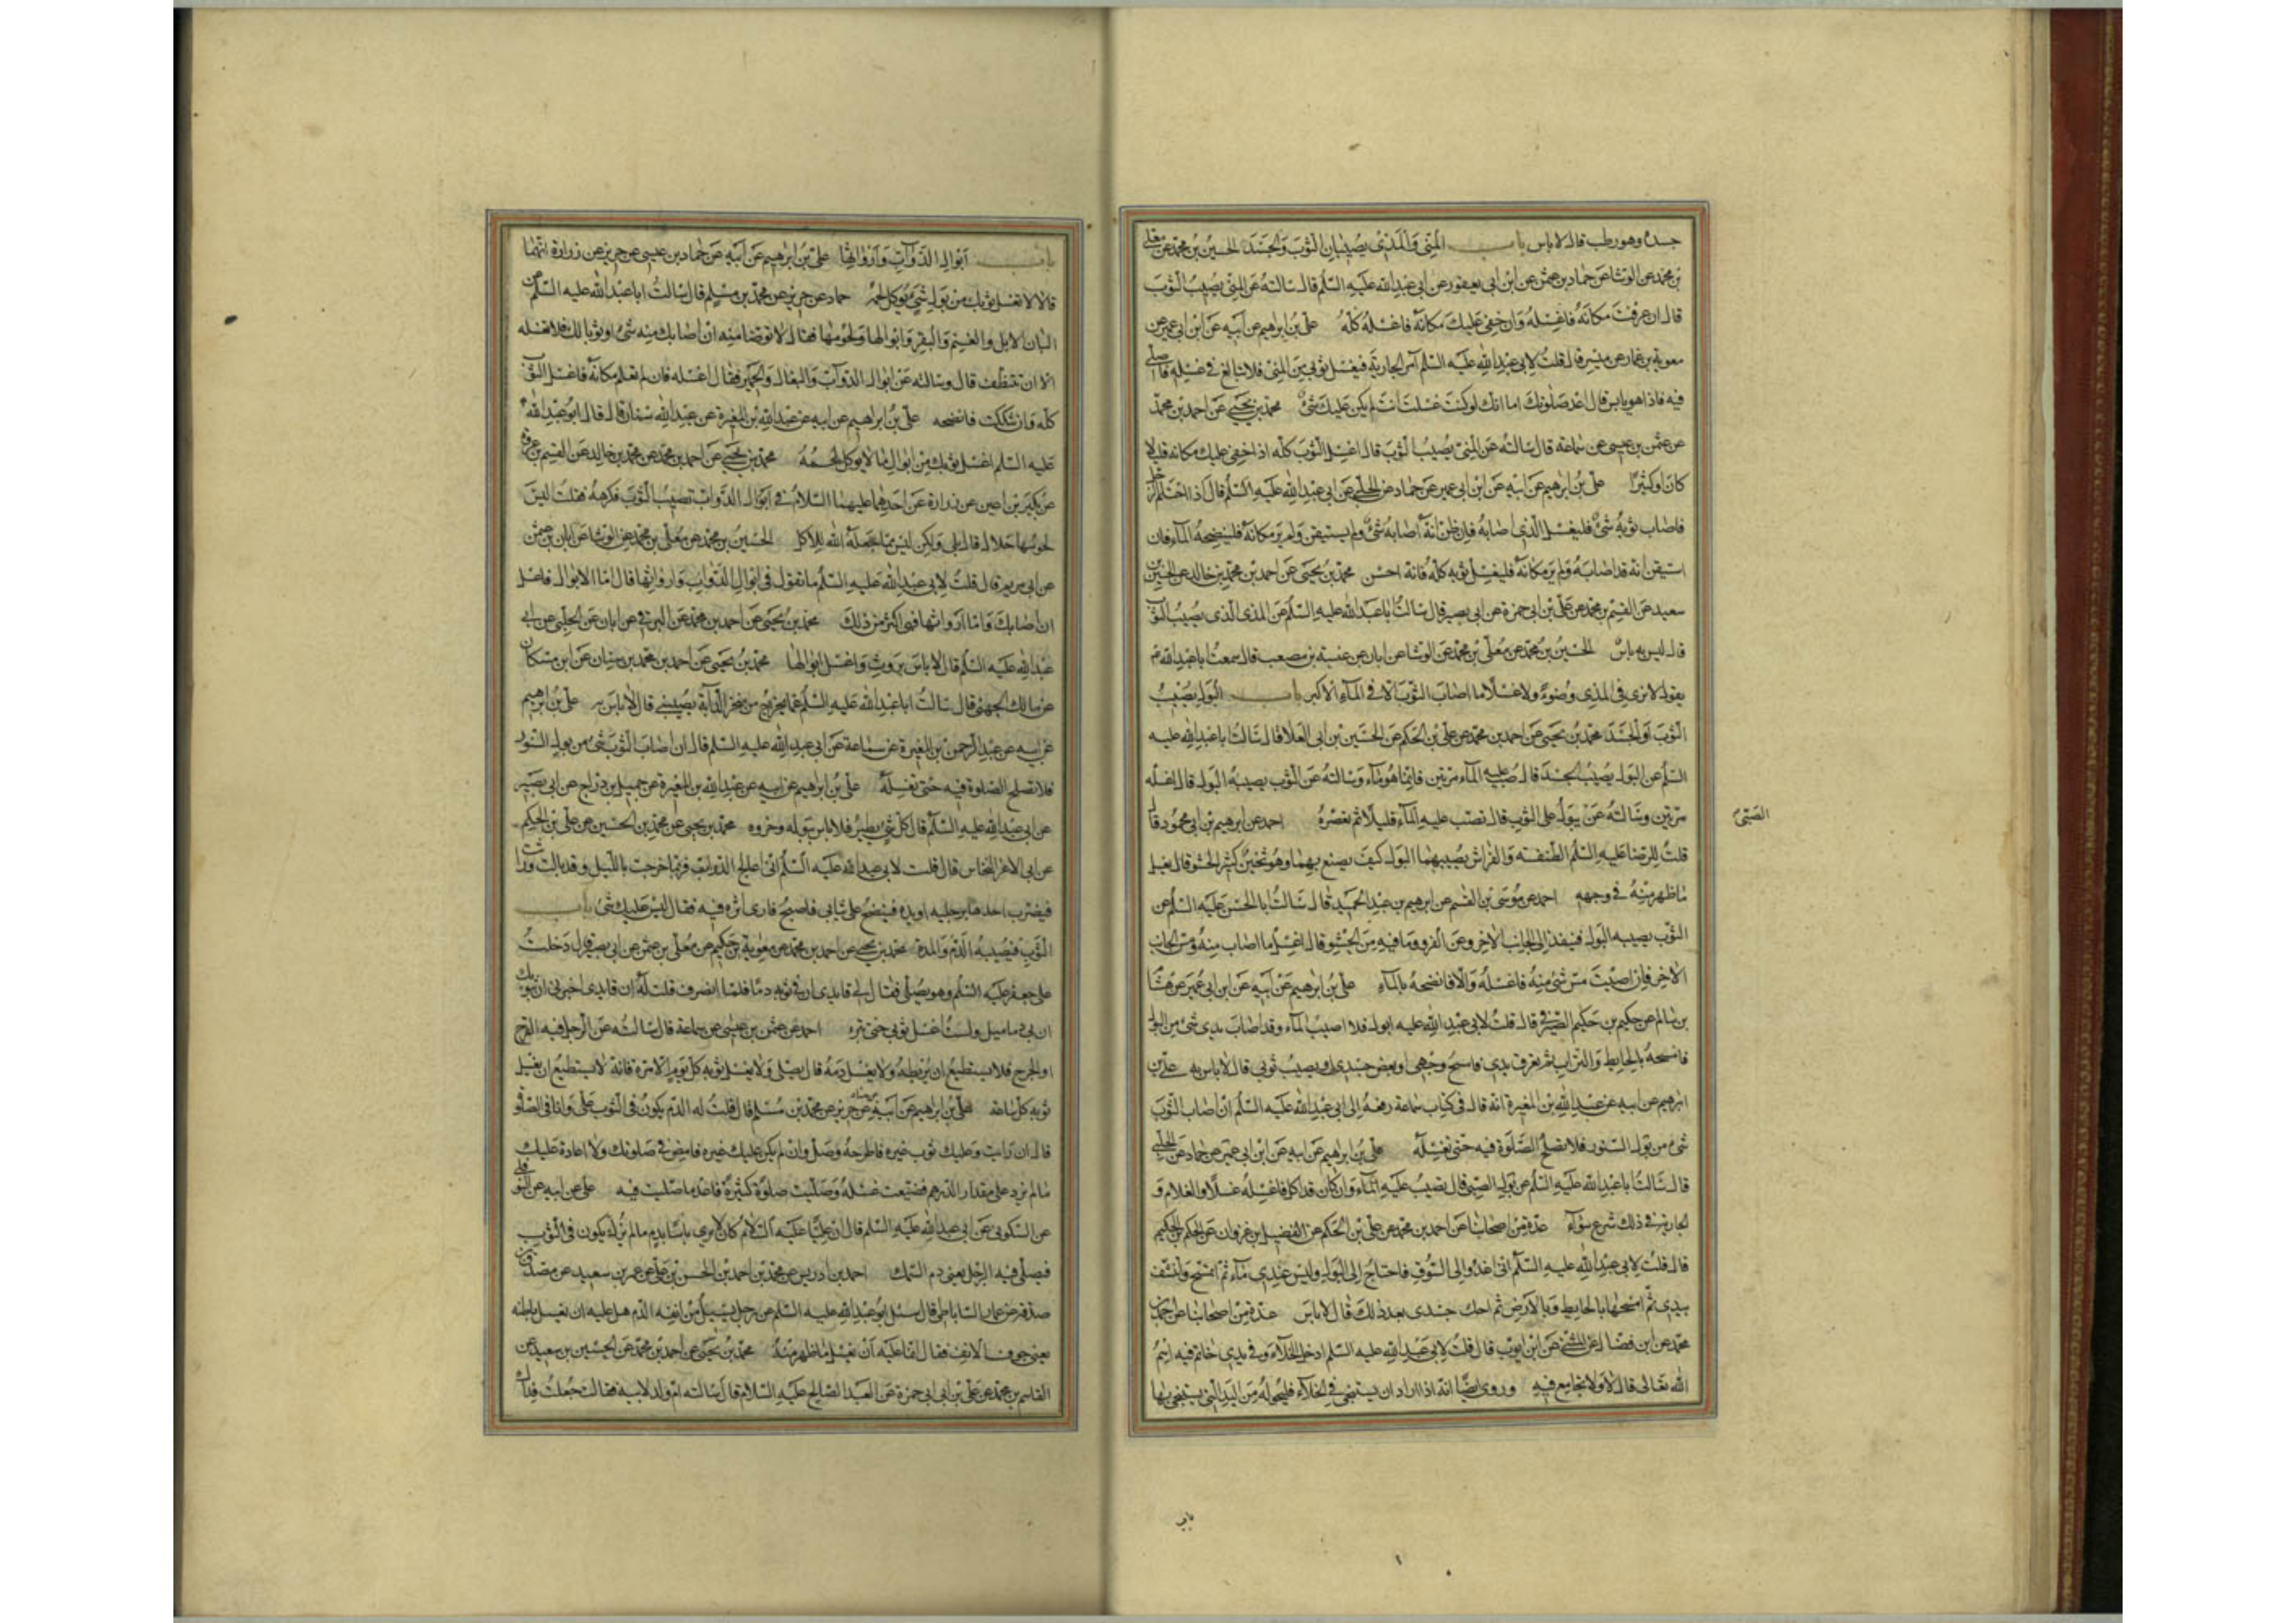 جسده وهو رطب قال لا باس باب المنى والمذى يصيبان الثوب والجسد الحسين بن محمد عن معلى
بن محمد عن الوشا عن حماد بن عثمن عن ابن ابى يعفور عن ابى عبد الله عليه السلم قال سالته عن المنى يصيب الثوب
قال ان عرفت مكانه فاغسله وان خفى عليك مكانه فاغسله كله على بن ابرهيم عن ابيه عن ابن ابى عمير عن
معوية بن عمار عن ميسر قال قلت لابى عبد الله عليه السلم آمر الجارية فيغسل ثوبى من المنى فلا تبالغ فى غسله فاصلى
فيه فاذا هو يابس قال اعد صلوتك اما انك لو كنت غسلت انت لم يكن عليك شئ محمد بن يحيى عن احمد بن محمد
عن عثمن بن عيسى عن سماعة قال سالته عن المنى يصيب الثوب قال اغسل الثوب كله اذا خفى عليك مكانه قليلا
كان او كثيرا على بن ابرهيم عن ابيه عن ابن ابى عمير عن حماد عن الحلبى عن ابى عبد الله عليه السلم قال اذا احتلم الرجل
فاصاب ثوبه شئ فليغسل الذى اصابه فان ظن انه اصابه شئ ولم يستيقن ولم ير مكانه فلينضحه بالماء فان
استيقن انه قد اصابه ولم ير مكانه فليغسل ثوبه كله فانه احسن محمد بن يحيى عن احمد بن محمد بن خالد عن الحسين بن
سعيد عن القسم بن محمد عن على بن ابى حمزة عن ابى بصير قال سالت ابا عبد الله عليه السلم عن المذى الذى يصيب الثوب
قال ليس به باس الحسين بن محمد عن معلى بن محمد عن الوشا عن ابان عن عنبسة بن مصعب قال سمعت ابا عبد الله ع
يقول لا نرى فى المذى وضوء ولا غسلا ما اصاب الثوب الا فى الماء الاكبر باب البول يصيب
الثوب او الجسد محمد بن يحيى عن احمد بن محمد عن على بن الحكم عن الحسين بن ابى العلا قال سالت ابا عبد الله عليه
السلم عن البول يصيب الجسد قال صب عليه الماء مرتين فانما هو ماء وسالته عن الثوب يصيبه البول قال اغسله
مرتين وسالته عن يبول على الثوب قال تصب عليه الماء قليلا ثم تعصره احمد عن ابرهيم بن ابى محمود قال
الصبى
قلت للرضا عليه السلم الطنفسة والفراش يصيبهما البول كيف يصنع بهما وهو ثخين كثير الحشو قال يغسل
ما ظهر منه فى وجهه احمد عن موسى بن القسم عن ابرهيم بن عبد الحميد قال سالت ابا الحسن عليه السلم عن
الثوب يصيبه البول فينفذ الى الجانب الاخر وعن الفرو وما فيه من الحشو قال اغسل ما اصاب منه ومس الجانب
الاخر فان اصبت مس شئ منه فاغسله والا فانضحه بالماء على بن ابرهيم عن ابيه عن ابن ابى عمير عن هشام
بن سالم عن حكيم بن حكيم الصيرفى قال قلت لابى عبد الله عليه ابول فلا اصيب الماء وقد اصاب يدى شئ من البول
فامسحه بالحايط والتراب ثم تعرق يدى فامسح وجهى او بعض جسدى او يصيب ثوبى قال لا باس به على بن
ابرهيم عن ابيه عن عبد الله بن المغيرة انه قال فى كتاب سماعة رفعه الى ابى عبد الله عليه السلم ان اصاب الثوب
شئ من بول السنور فلا تصلح الصلوة فيه حتى تغسله على بن ابرهيم عن ابيه عن ابن ابى عمير عن حماد عن الحلبى
قال سالت ابا عبد الله عليه السلم عن بول الصبى قال تصب عليه الماء وان كان قد اكل فاغسله غسلا والغلام و
الجارية فى ذلك شرع سواء عدة من اصحابنا عن احمد بن محمد عن على بن الحكم عن الفضيل بن غزوان عن الحكم بن الحكيم
قال قلت لابى عبد الله عليه السلم انى اغدو الى السوق فاحتاج الى البول وليس عندى ماء ثم اتمسح واتنشف
بيدى ثم امسحها بالحايط وبالارض ثم احك جسدى بعد ذلك قال لا باس عدة من اصحابنا عن احمد بن
محمد عن ابن فضال عن المثنى عن ابى ايوب قال قلت لابى عبد الله عليه السلم ادخل الخلاء وفى يدى خاتم فيه اسم
الله تعالى قال لا ولا تجامع فيه وروى ايضا انه اذا اراد ان يستنجى فى الخلاء فليحوله من اليد التى يستنجى بها
باب
باب ابوال الدواب وارواثها على بن ابرهيم عن ابيه عن حماد بن عيسى عن حريز عن زرارة انهما
قالا لا تغسل ثوبك من بول شئ يوكل لحمه حماد عن حريز عن محمد بن مسلم قال سالت ابا عبد الله عليه السلم عن
البان الابل والغنم والبقر وابوالها ولحومها فقال لا توضا منه ان اصابك منه شئ او ثوبا لك فلا تغسله
الا ان تتنظف قال وسالته عن ابوال الدواب والبغال والحمير فقال اغسله فان لم تعلم مكانه فاغسل الثوب
كله وان شككت فانضحه على بن ابرهيم عن ابيه عن عبد الله بن المغيرة عن عبد الله سنان قال قال ابو عبد الله
عليه السلم اغسل ثوبك من ابوال ما لا يوكل لحمه محمد بن يحيى عن احمد بن محمد عن محمد بن خالد عن القسم بن عروة
عن بكير بن اعين عن زرارة عن احدهما عليهما السلام فى ابوال الدواب تصيب الثوب فكرهه فقلت اليس
لحومها حلالا قال بلى ولكن ليس مما جعله الله للاكل الحسين بن محمد عن معلى بن محمد عن الوشا عن ابان بن عثمن
عن ابى مريم قال قلت لابى عبد الله عليه السلم ما تقول فى ابوال الدواب وارواثها قال اما الابوال فاغسل
ان اصابك واما ارواثها فهى اكثر من ذلك محمد بن يحيى عن احمد بن محمد عن البرقى عن ابان عن الحلبى عن ابى
عبد الله عليه السلم قال لا باس بروث واغسل ابوالها محمد بن يحيى عن احمد بن محمد بن سنان عن ابن مسكان
عن مالك الجهنى قال سالت ابا عبد الله عليه السلم عما يخرج من منخر الدابة يصيبنى قال لا باس به على بن ابرهيم
عن ابيه عن عبد الرحمن بن المغيرة عن سماعة عن ابى عبد الله عليه السلم قال ان اصاب الثوب شئ من بول السنور
فلا تصلح الصلوة فيه حتى تغسله على بن ابرهيم عن ابيه عن عبد الله بن المغيرة عن جميل بن دراج عن ابى بصير
عن ابى عبد الله عليه السلم قال كل شئ يطير فلا باس ببوله وخروه محمد بن يحيى عن محمد بن الحسين عن على بن الحكم
عن ابى الاغر النخاس قال قلت لابى عبد الله عليه السلم انى اعالج الدواب فربما خرجت بالليل وقد بالت وراثت
فيضرب احدها برجليه او يده فينضح على ثيابى فاصبح فارى اثره فيه فقال ليس عليك شئ باب
الثوب فيصيبه الدم والمدة محمد بن يحيى عن احمد بن محمد عن معوية بن حكيم عن معلى بن عثمن عن ابى بصير قال دخلت
على جعفر عليه السلم وهو يصلى فقال لى قايدى ان فى ثوبه دما فلما انصرف قلت له ان قايدى اخبرنى ان بثوبك
ان بى دماميل ولست اغسل ثوبى حتى تبرء احمد عن عثمن بن عيسى عن سماعة قال سالته عن الرجل فيه القرح
او الجرح فلا يستطيع ان يربطه ولا يغسل دمه قال يصلى ولا يغسل ثوبه كل يوم الا مرة فانه لا يستطيع ان يغسل
ثوبه كل ساعة على بن ابرهيم عن ابيه عن حريز عن محمد بن مسلم قال قلت له الدم يكون فى الثوب على وانا فى الصلوة
قال ان رايت وعليك ثوب غيره فاطرحه وصل وان لم يكن عليك غيره فامض فى صلوتك ولا اعادة عليك
ما لم يزد على مقدار الدرهم فضيعت غسله وصليت صلوة كثيرة فاعد ما صليت فيه على عن ابيه عن النوفلى
عن السكونى عن ابى عبد الله عليه السلم قال ان عليا عليه السلام كان لا يرى باسا بدم ما لم يذك يكون فى الثوب
فيصلى فيه الرجل يعنى دم السمك احمد بن ادريس عن محمد بن احمد بن الحسن بن على عن عمرو بن سعيد عن مصدق بن
صدقه عن عمار الساباطى قال سئل ابو عبد الله عليه السلم عن رجل يسيل من انفه الدم هل عليه ان يغسل باطنه
يعنى جوف الانف فقال انما عليه ان يغسل ما ظهر منه محمد بن يحيى عن احمد بن محمد عن الحسين بن سعيد عن
القاسم بن محمد عن على بن ابى ابى حمزة عن العبد الصالح عليه السلام قال سالته ام ولد لابيه فقالت جعلت فداك